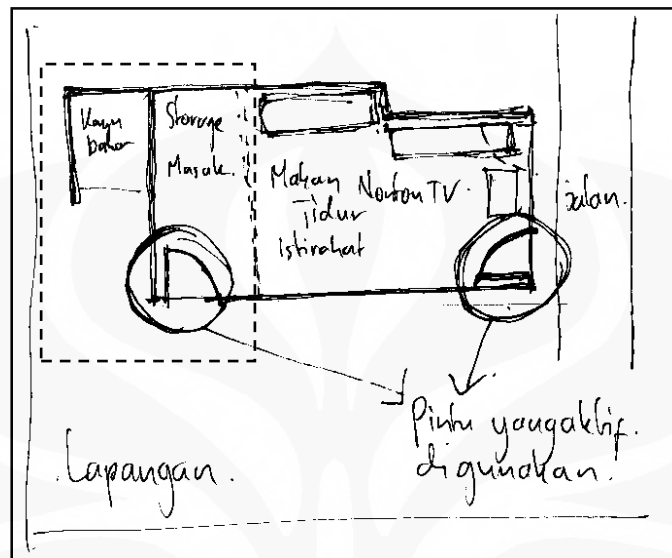 Kayu
bakar
Storage
Masak.
Makan Nonton TV.
Tidur
istirahat
jalan.
Pintu yang aktif.
digunakan.
Lapangan.